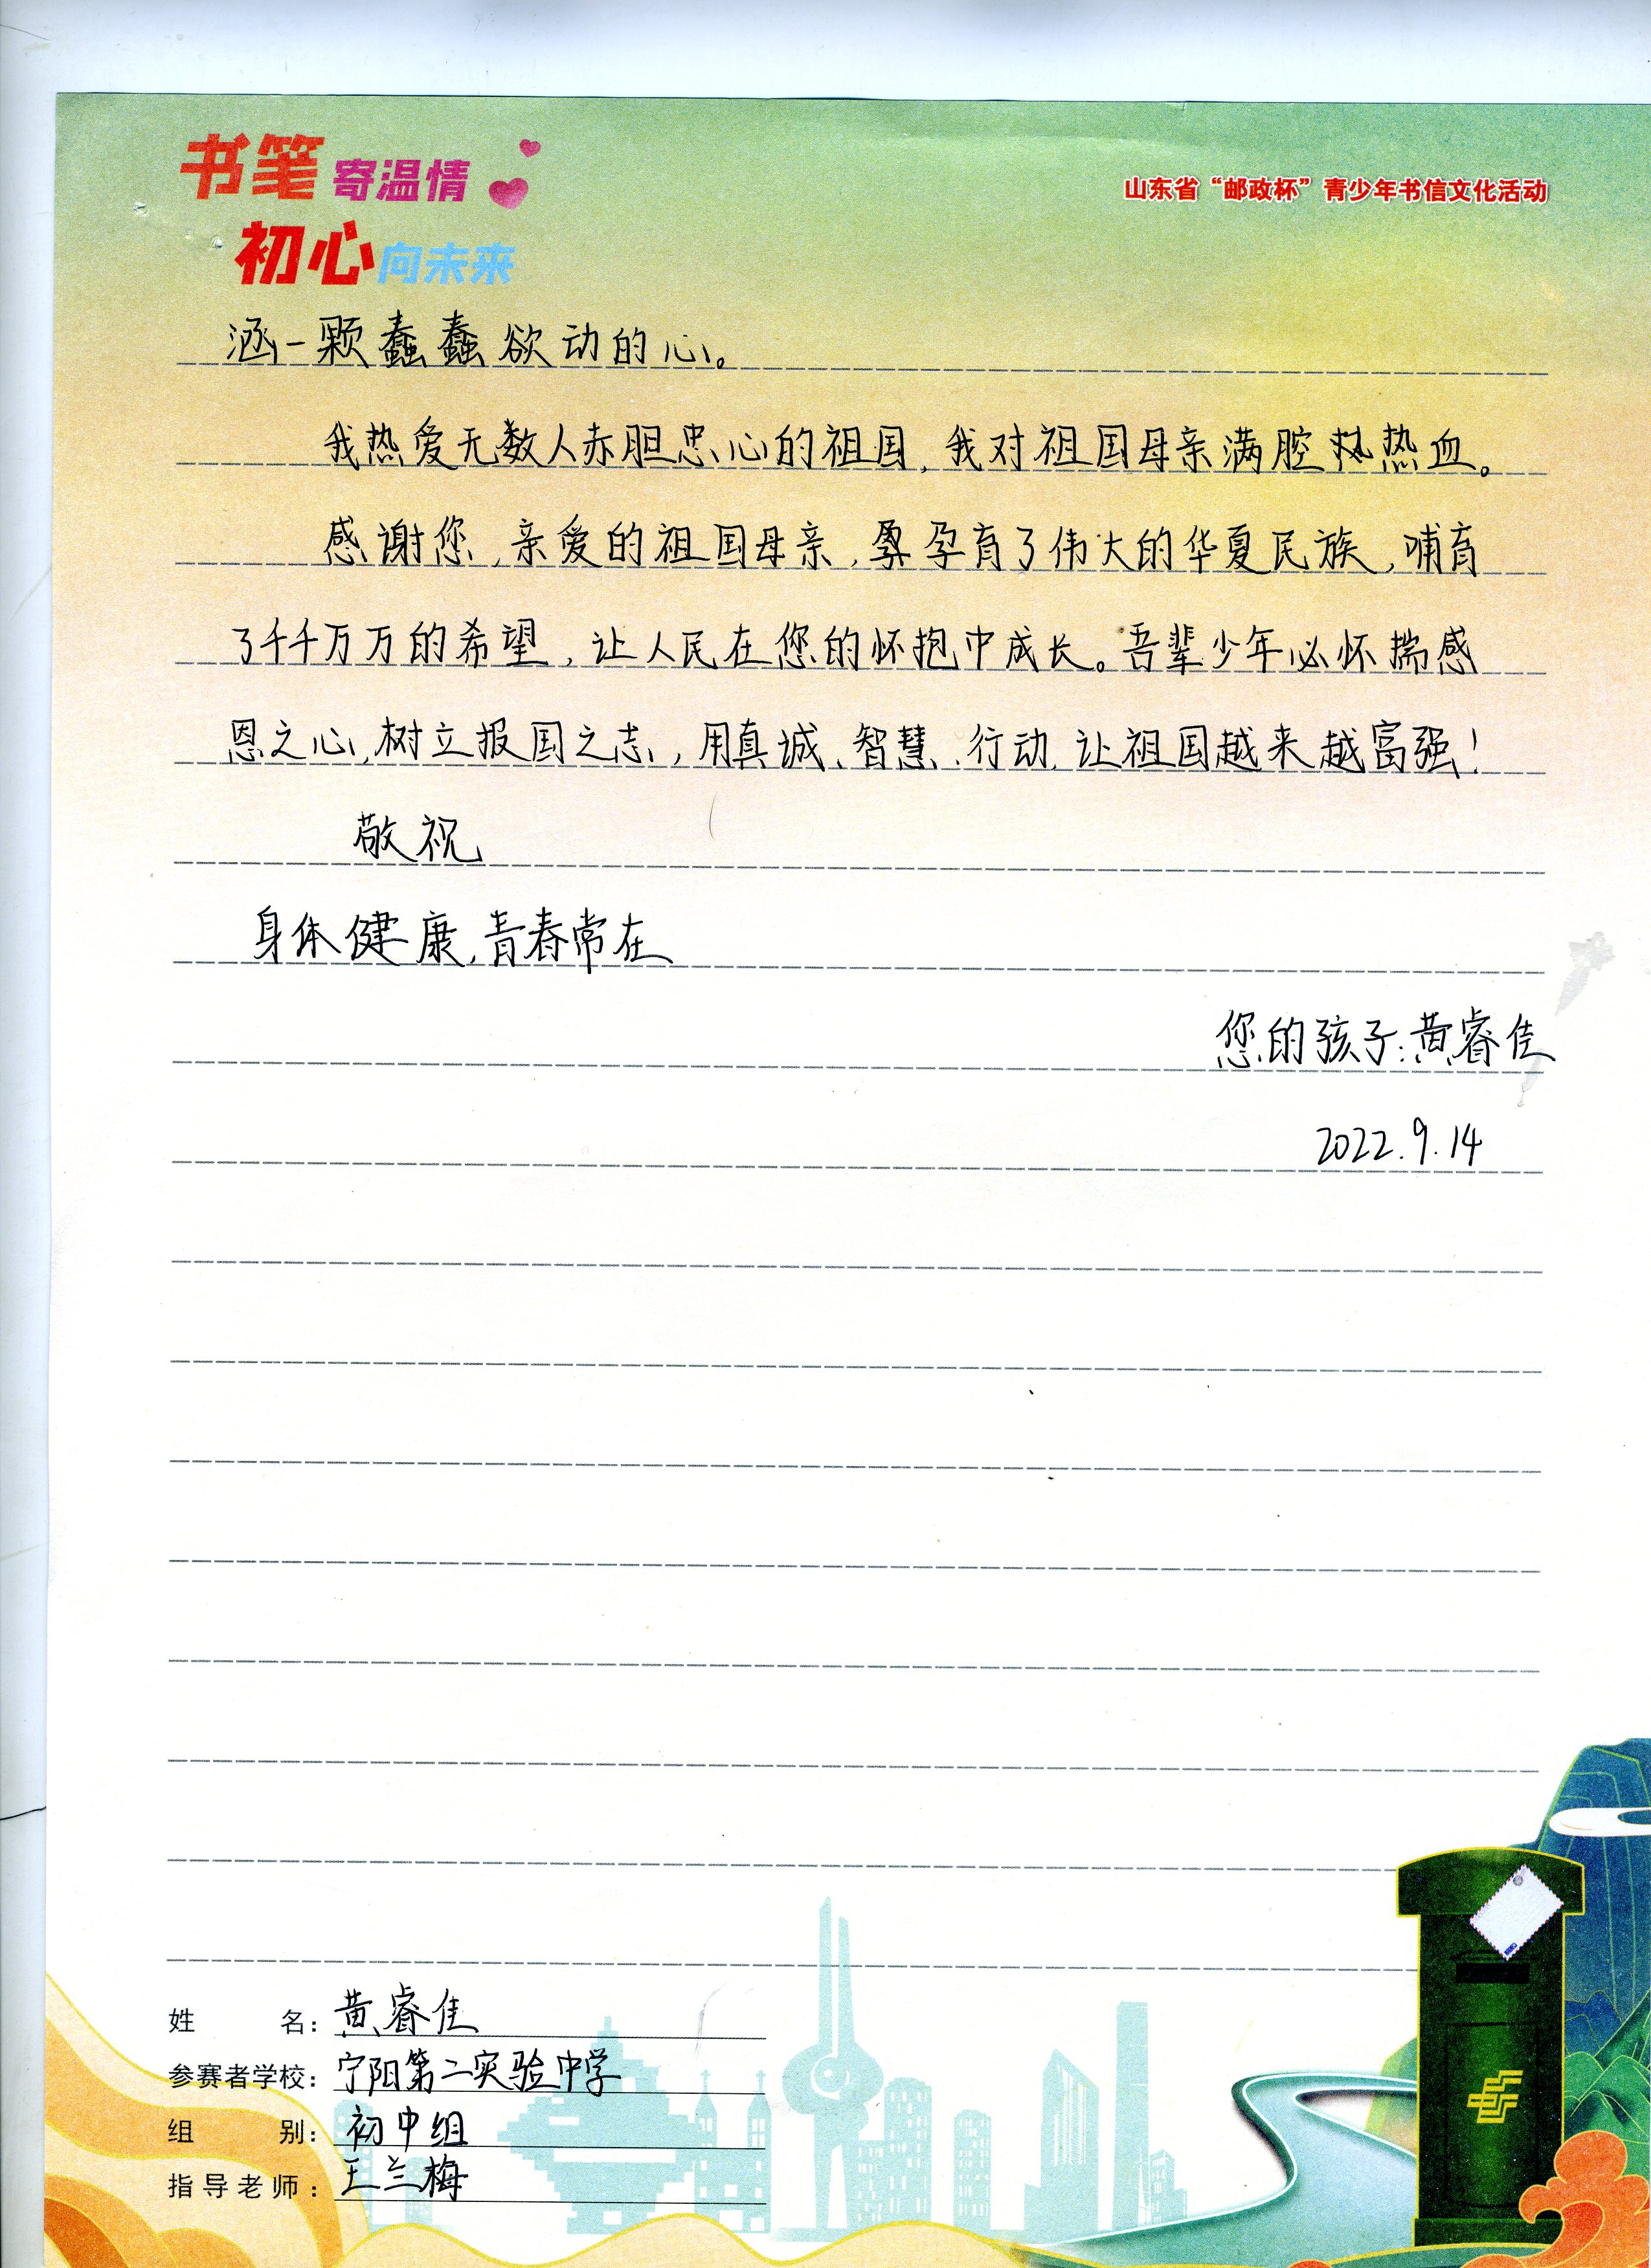 书笔寄温情
初心向未来
山东省“邮政杯”青少年书信文化活动
涵一颗蠢蠢欲动的心。
我热爱无数人赤胆忠心的祖国，我对祖国母亲满腔热血。
感谢您，亲爱的祖国母亲，孕育了伟大的华夏民族，哺育
了千千万万的希望，让人民在您的怀抱中成长。吾辈少年必怀揣感
恩之心，树立报国之志，用真诚、智慧、行动，让祖国越来越富强！
敬祝
身体健康，青春常在
您的孩子：黄睿佳
2022.9.14
姓名：黄睿佳
参赛者学校：宁阳第二实验中学
组别：初中组
指导老师：王兰梅